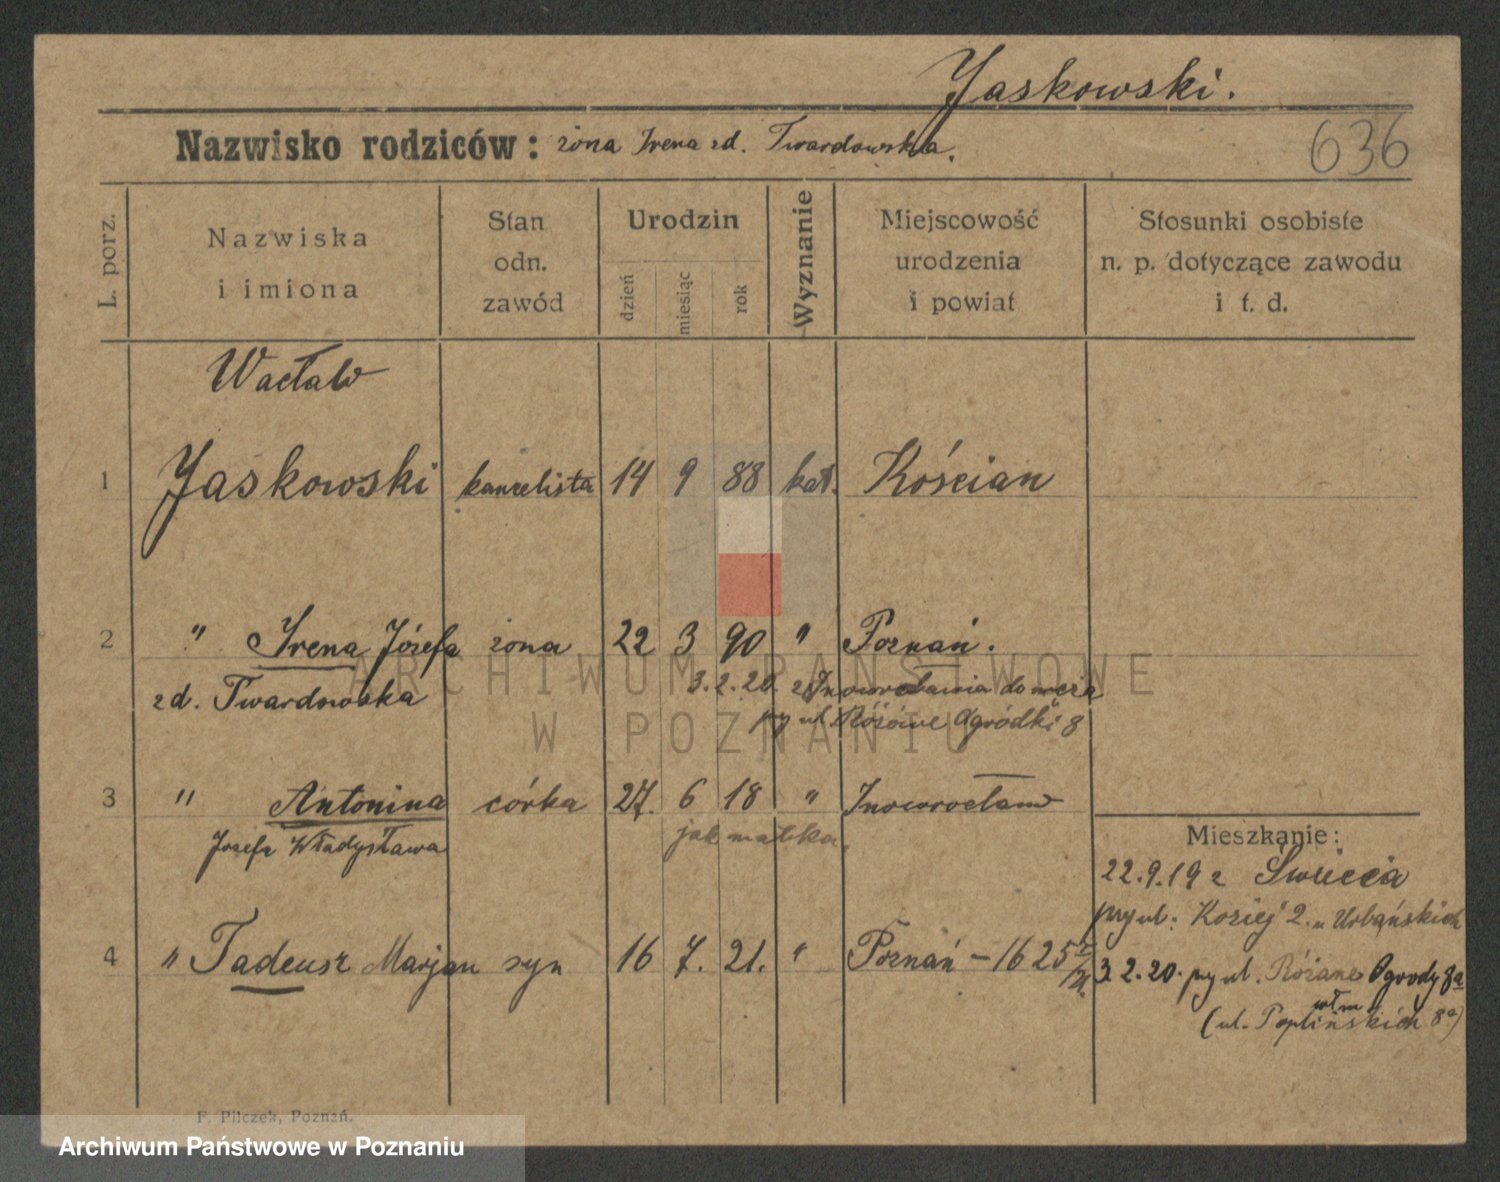 Jaskowski.
Nazwisko rodziców: żona Irena zd. Twardowska.
636
L. porz.
Nazwiska i imiona
Stan odn. zawód
Urodzin
dzień
miesiąc
rok
Wyznanie
Miejscowość urodzenia i powiat
Stosunki osobiste n. p. dotyczące zawodu i t. d.
Wacław
1 Jaskowski kancelista 14 9 88 kat. Kościan
2 " Irena Józefa żona 22 3 90 " Poznań.
zd. Twardowska 3.2.20. z Inowrocławia do męża
przy ul. Różowe Ogródki 8
3 " Antonina córka 27. 6 18 " Inowrocław
Józefa Władysława jak matka.
4 " Tadeusz Marjan syn 16 7. 21. " Poznań – 1625
Mieszkanie:
22.9.19 z Świecia
przy ul. Koziej 2. u Urbańskich
3.2.20. przy ul. Różane Ogrody 8a
(ul. Poplińskich 8a)
F. Pilczek, Poznań.
ARCHIWUM PAŃSTWOWE
W POZNANIU
Archiwum Państwowe w Poznaniu